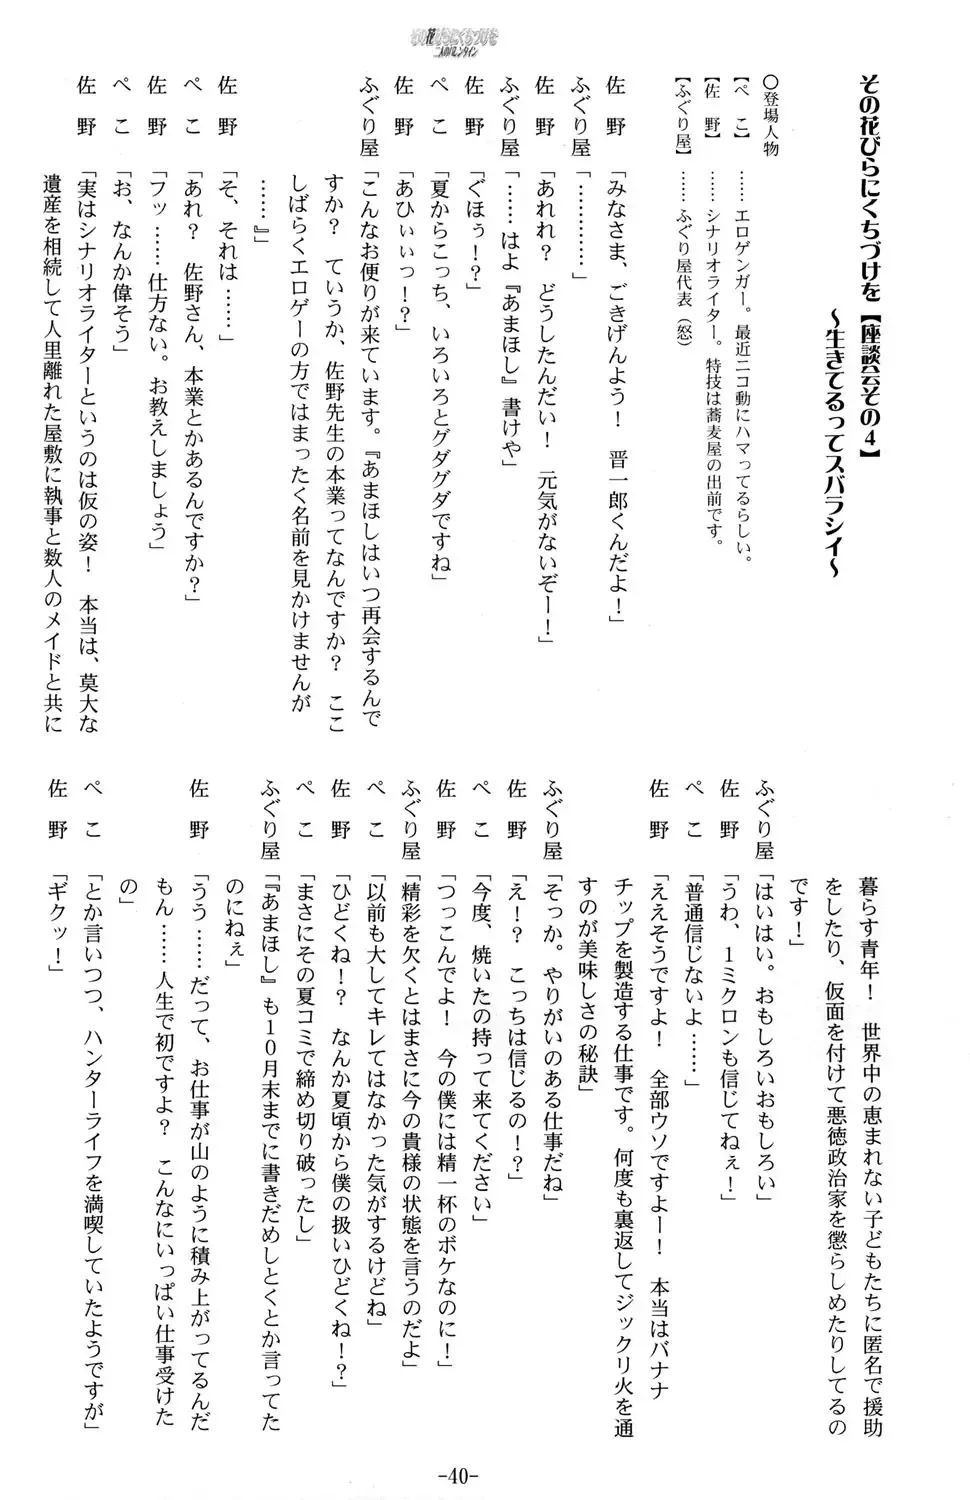 その花びらにくちづけを
二人のバレンタイン
その花びらにくちづけを【座談会その4】
～生きてるってスバラシイ～
○登場人物
【ぺ　こ】……エロゲンガー。最近ニコ動にハマってるらしい。
【佐　野】……シナリオライター。特技は蕎麦屋の出前です。
【ふぐり屋】……ふぐり屋代表（怒）
佐　野「みなさま、ごきげんよう！　晋一郎くんだよ！」
ふぐり屋「…………」
佐　野「あれれ？　どうしたんだい！　元気がないぞー！」
ふぐり屋「……はよ『あまほし』書けや」
佐　野「ぐほぅ！？」
ぺ　こ「夏からこっち、いろいろとグダグダですね」
佐　野「あひぃぃっ！？」
ふぐり屋「こんなお便りが来ています。『あまほしはいつ再会するんで
すか？　ていうか、佐野先生の本業ってなんですか？　ここ
しばらくエロゲーの方ではまったく名前を見かけませんが
……』」
佐　野「そ、それは……」
ぺ　こ「あれ？　佐野さん、本業とかあるんですか？」
佐　野「フッ……仕方ない。お教えしましょう」
ぺ　こ「お、なんか偉そう」
佐　野「実はシナリオライターというのは仮の姿！　本当は、莫大な
遺産を相続して人里離れた屋敷に執事と数人のメイドと共に
暮らす青年！　世界中の恵まれない子どもたちに匿名で援助
をしたり、仮面を付けて悪徳政治家を懲らしめたりしてるの
です！」
ふぐり屋「はいはい。おもしろいおもしろい」
佐　野「うわ、1ミクロンも信じてねぇ！」
ぺ　こ「普通信じないよ……」
佐　野「ええそうですよ！　全部ウソですよー！　本当はバナナ
チップを製造する仕事です。何度も裏返してジックリ火を通
すのが美味しさの秘訣」
ふぐり屋「そっか。やりがいのある仕事だね」
佐　野「え！？　こっちは信じるの！？」
ぺ　こ「今度、焼いたの持って来てください」
佐　野「つっこんでよ！　今の僕には精一杯のボケなのに！」
ふぐり屋「精彩を欠くとはまさに今の貴様の状態を言うのだよ」
ぺ　こ「以前も大してキレてはなかった気がするけどね」
佐　野「ひどくね！？　なんか夏頃から僕の扱いひどくね！？」
ぺ　こ「まさにその夏コミで締め切り破ったし」
ふぐり屋「『あまほし』も10月末までに書きだめしとくとか言ってた
のにねぇ」
佐　野「うう……だって、お仕事が山のように積み上がってるんだ
もん……人生で初ですよ？　こんなにいっぱい仕事受けた
の」
ぺ　こ「とか言いつつ、ハンターライフを満喫していたようですが」
佐　野「ギクッ！」
-40-